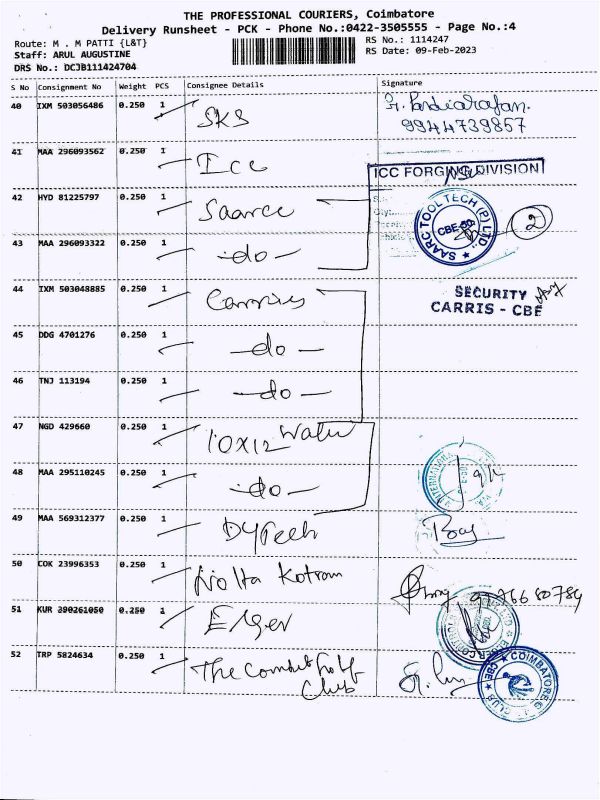 THE PROFESSIONAL COURIERS, Coimbatore
Delivery Runsheet - PCK - Phone No.:0422-3505555 - Page No.:4
Route: M . M PATTI {L&T}
RS No.: 1114247
Staff: ARUL AUGUSTINE
RS Date: 09-Feb-2023
DRS No.: DCJB111424704
S No Consignment No Weight PCS Consignee Details Signature
40 IXM 503056486 0.250 1 SKS
9944739857
41 MAA 296093562 0.250 1 Icc
ICC FORGING DIVISION
42 HYD 81225797 0.250 1 Saarce
SAARC TOOL TECH (P) LTD., CBE-50 2
43 MAA 296093322 0.250 1 -do-
44 IXM 503048885 0.250 1
SECURITY
CARRIS - CBE
45 DDG 4701276 0.250 1 -do-
46 TNJ 113194 0.250 1 -do-
47 NGD 429660 0.250 1 10X12 Water
48 MAA 295110245 0.250 1 -do-
49 MAA 569312377 0.250 1 DyTech
50 COK 23996353 0.250 1
9776680789
51 KUR 390261050 0.250 1 Elgev
52 TRP 5824634 0.250 1 The
Club
COIMBATORE G CLUB CBE